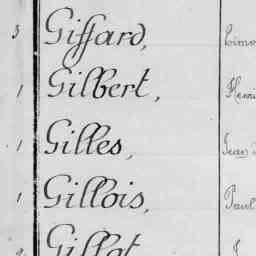 3 Giffard,
1 Gilbert, Henri
1 Gilles, Jean
1 Gillois, Paul
Gillot